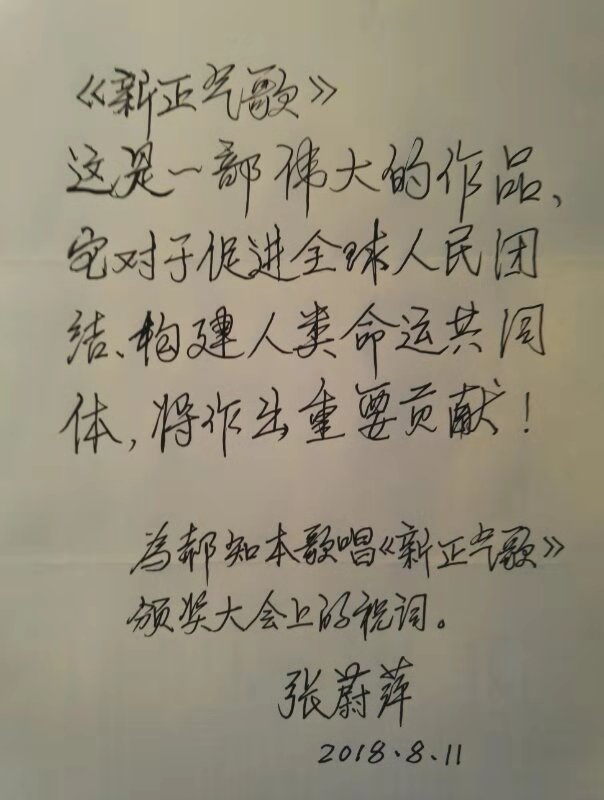 《新正气歌》
这是一部伟大的作品,
它对于促进全球人民团
结、构建人类命运共同
体,将作出重要贡献!
为郝知本歌唱《新正气歌》
颁奖大会上的祝词。
张蔚萍
2018.8.11